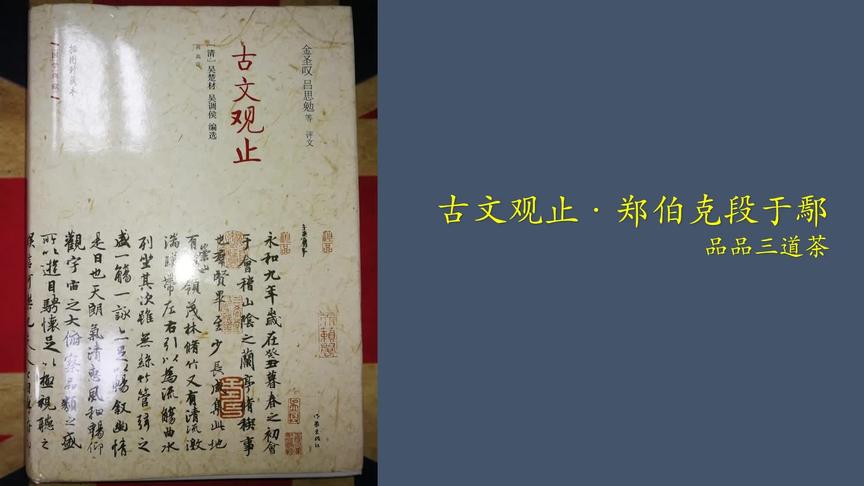 古文观止
金圣叹 吕思勉 等 评文
[清] 吴楚材 吴调侯 编选
插图珍藏本
永和九年歲在癸丑暮春之初會
于會稽山陰之蘭亭脩禊事
也羣賢畢至少長咸集此地
有崇山峻領茂林脩竹又有清流激
湍暎帶左右引以為流觴曲水
列坐其次雖無絲竹管弦之
盛一觴一詠亦足以暢叙幽情
是日也天朗氣清惠風和暢仰
觀宇宙之大俯察品類之盛
所以遊目騁懷足以極視聽之
作家出版社
古文观止·郑伯克段于鄢
品品三道茶